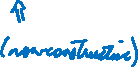 ⇑
(nonconstructive)